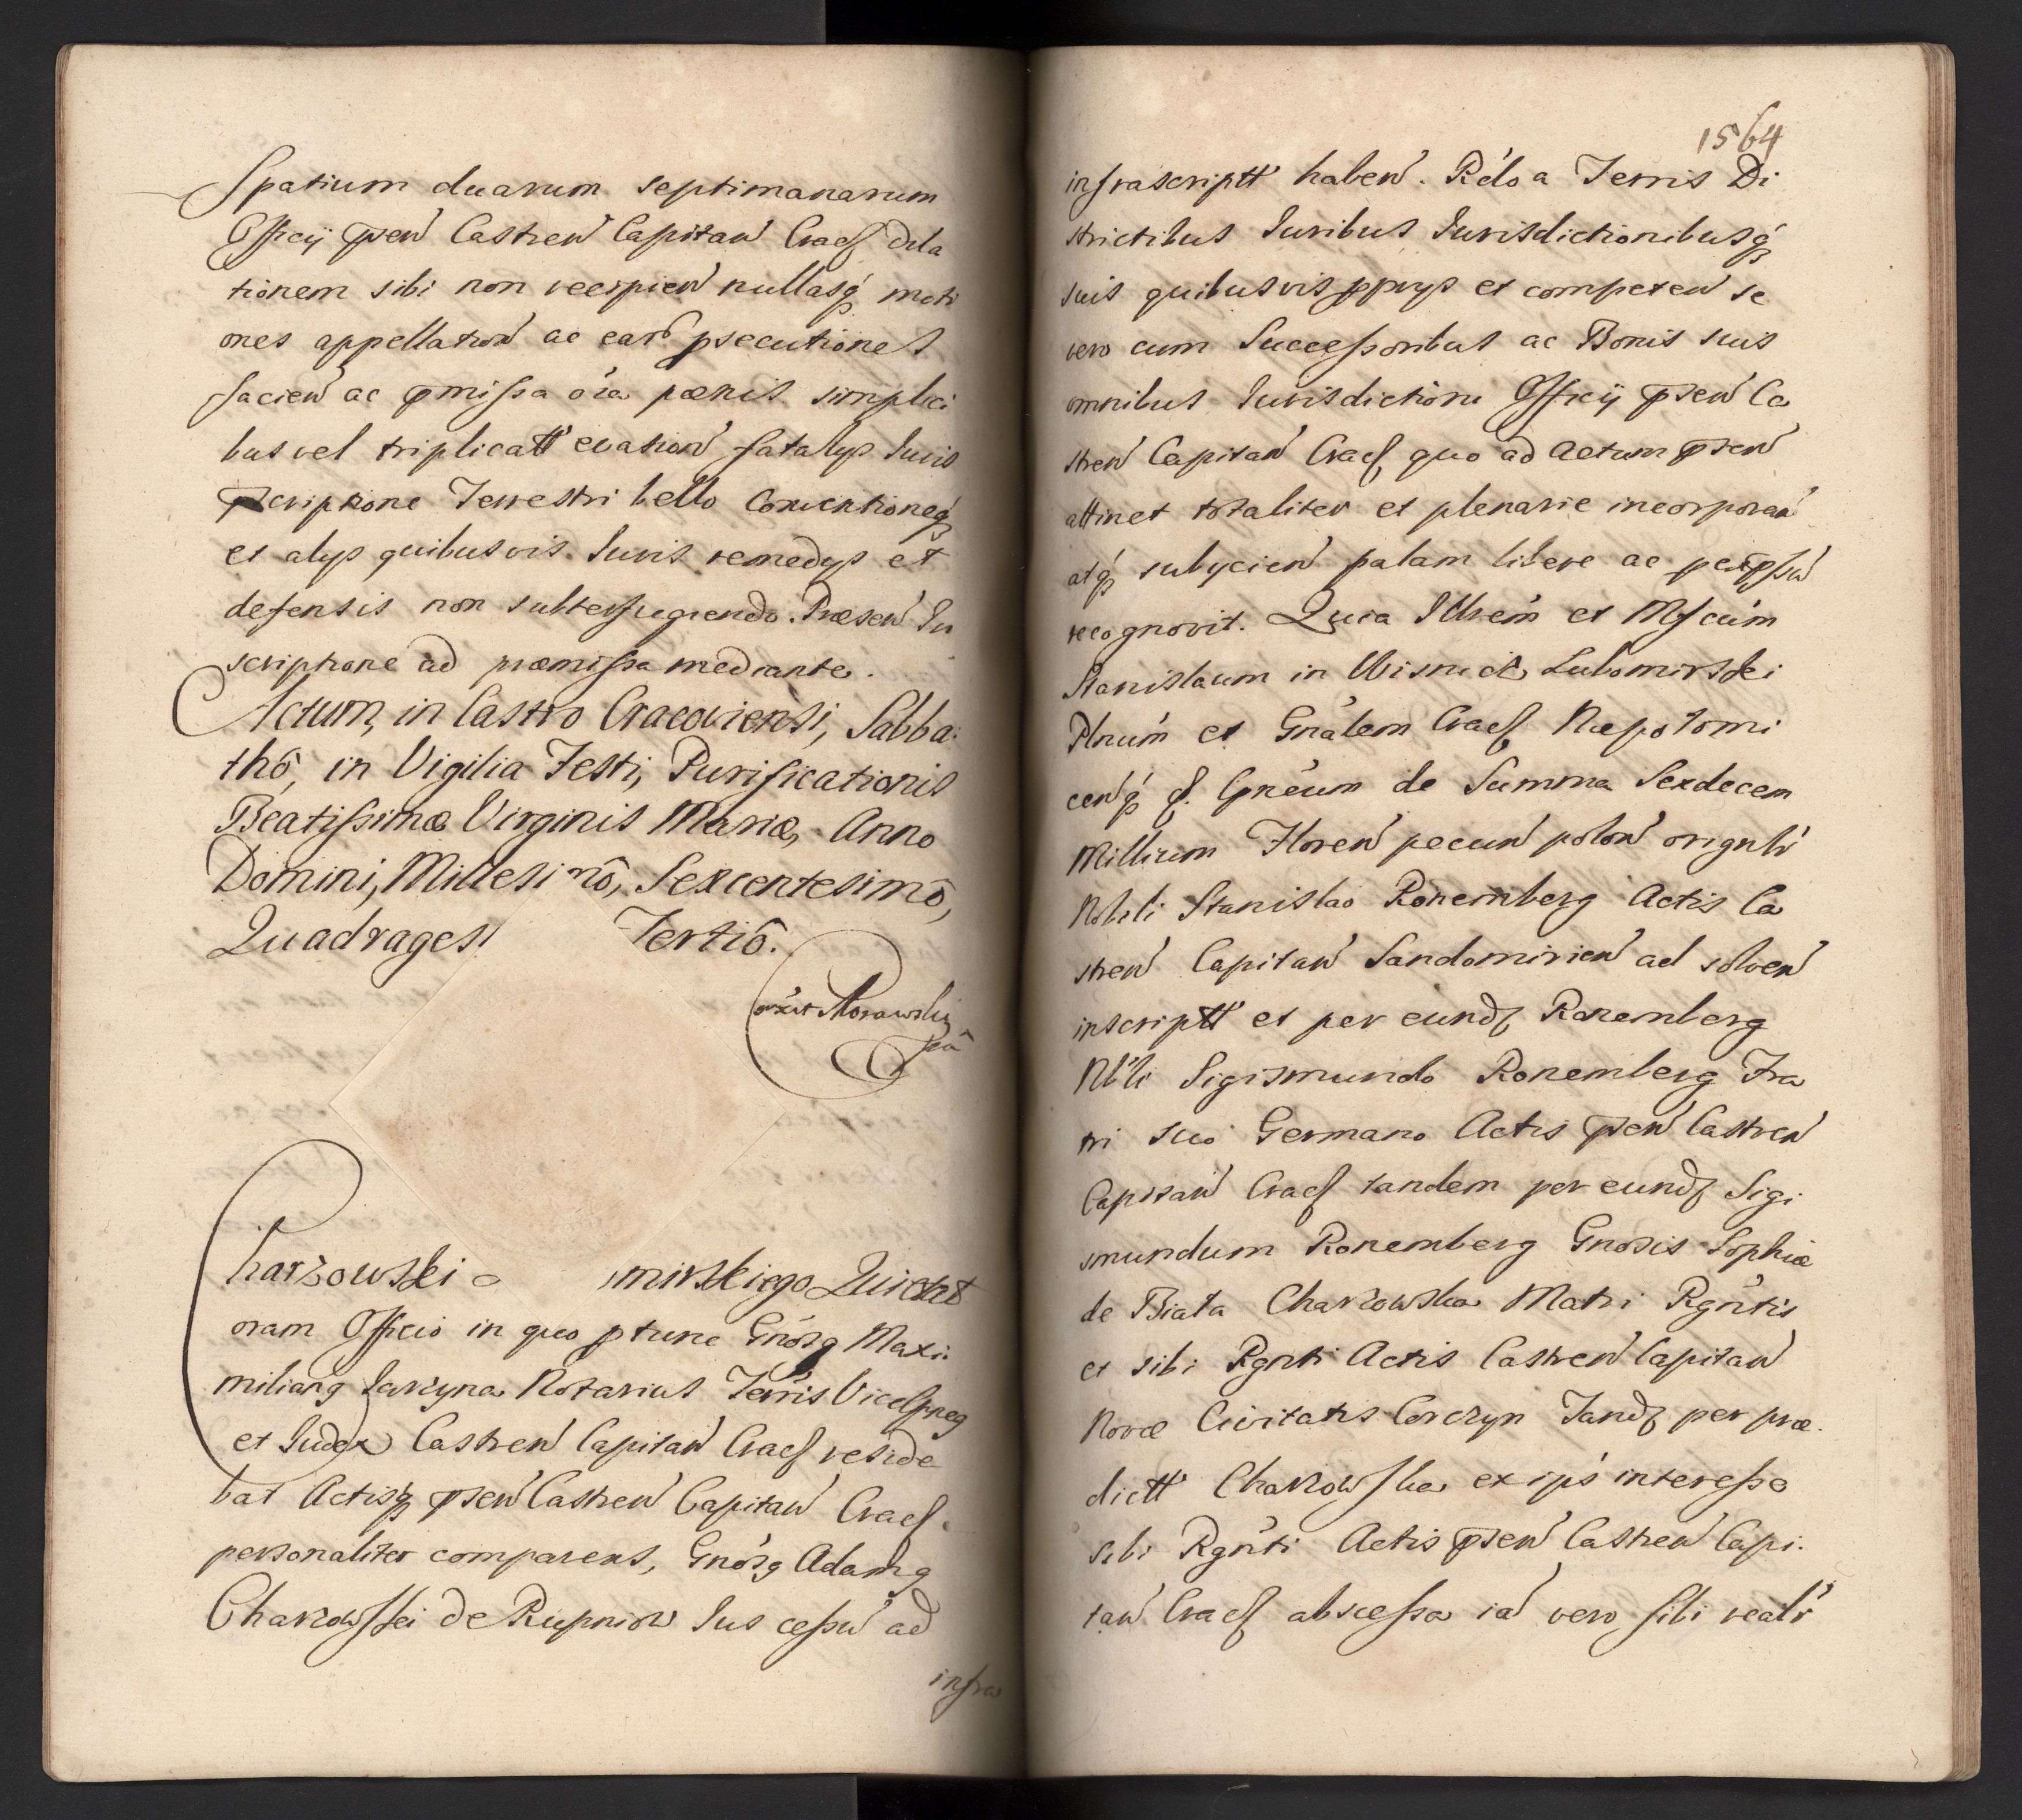 Spatium duarum septimanarum
Officij pñen Castren Capitan Cracs dila
tionem sibi non recipien nullasq moti
ones appellation ac ear psecutiones
facien ac pmissa oia pænis simplici
bus vel triplicatt evasion fatalys Iuris
pscriptione Terrestri bello Conventioneq
et alys quibusvis Iuris remedys et
defensis non subterfugiendo. Præsen In
scriptione ad præmissa mediante.
Actum, in Castro Cracoviensi, Sabba:
thô, in Vigilia Festi, Purificationis
Beatissimæ Virginis Mariæ, Anno
Domini, Millesimô, Sexcentesimô,
Quadrages Tertiô.
Morawski
Charzowski mirskiego Quietat
oram Officio in quo ptunc Gnósq Maxi:
milianq Jarzyna Notarius Terris Vicesgreg
et Iudex Castren Capitan Cracs reside
bat Actisq pñen Castren Capitan Cracs
personaliter comparens, Gnósq Adamq
Charzowski de Rupniow Ius cessu ad
infra
1564
infrascriptt haben. Rdo a Terris Di
strictibus Iuribus Iurisdictionibusq
suis quibusvis pprys et competen se
vero cum Successoribus ac Bonis suis
omnibus Iurisdictioni Officij pñsen Ca
stren Capitan Cracs quo ad Actum pñsen
attinet totaliter et plenarie incorporan
atq subycien palam libere ac perpssu
recognovit. Quia Illrem et Mfcum
Stanislaum in Wisnicz Lubomirski
Plnum et Gnálem Cracs Næpolomi
cenq Gnéum de Summa Sexdecem
Millium Floren pecun polon orignlr
Nobili Stanislao Ronemberg Actis Ca
stren Capitan Sandomirien ad solven
inscriptt et per eund Ronemberg
Nbli Sigismundo Ronemberg Fra
tri suo Germano Actis pñsen Castren
Capitan Cracs tandem per eund Sigi
smundum Ronemberg Gnosis Sophiæ
de Biała Charzowska Matri Rgntis
et sibi Rgnti Actis Castren Capitan
Novæ Civitatis Corczyn Tand per præ
dictt Charzowska ex ips interesse
sibi Rgnti Actis pñsen Castren Capi.
tan Cracs abscessa ia vero sibi realr